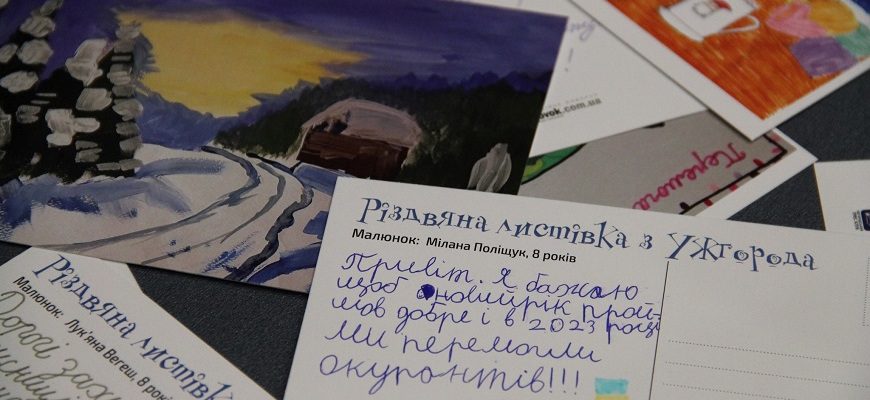 vok.com.ua
Перемога
Різдвяна листівка з Ужгорода
Малюнок: Мілана Поліщук, 8 років
Привіт. Я бажаю
щоб новийрік прой-
шов добре і в 2023 році
ми перемогли
окупонтів!!!
Різдвяна листівка
Малюнок: Лук'яна Вегеш, 8 років
Дорогі